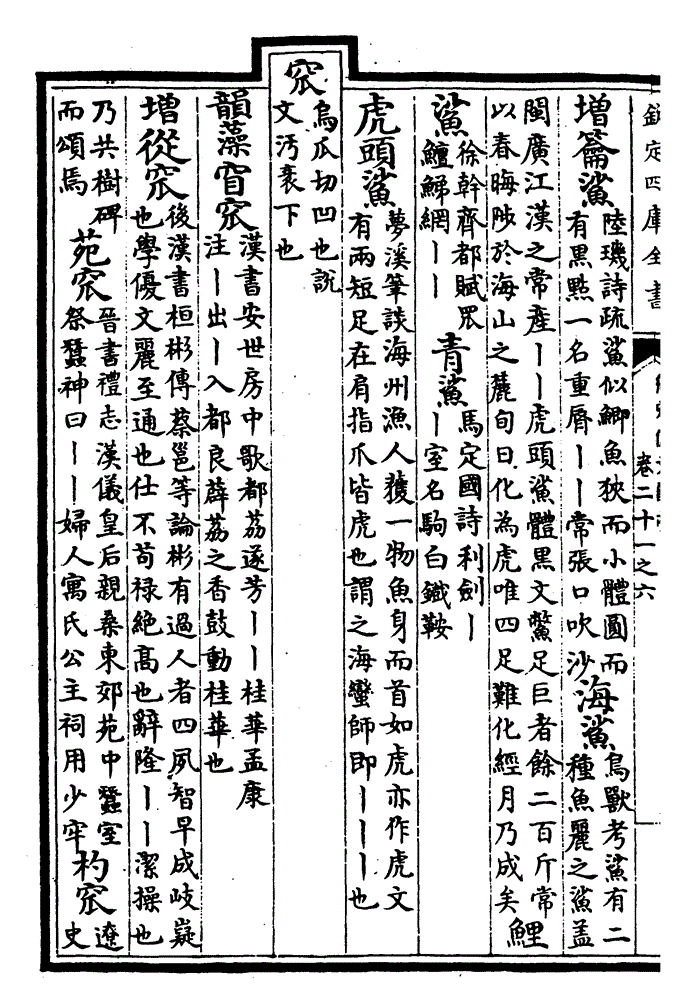 欽定四庫全書
卷二十一之六
增籥鯊
陸璣詩疏鯊似鯽魚狹而小體圓而
有黑點一名重脣丨丨常張口吹沙
海鯊
鳥獸考鯊有二
種魚麗之鯊蓋
閩廣江漢之常產丨丨虎頭鯊體黑文鱉足巨者餘二百斤常
以春晦陟於海山之麓旬日化為虎唯四足難化經月乃成矣
鯉
鯊
徐幹齊都賦罛
鱣鯷網丨丨
青鯊
馬定國詩利劍丨
丨室名駒白鐵鞍
虎頭鯊
夢溪筆談海州漁人獲一物魚身而首如虎亦作虎文
有兩短足在肩指爪皆虎也謂之海蠻師即丨丨丨也
窊
烏瓜切凹也說
文汚衺下也
韻藻窅窊
漢書安世房中歌都荔遂芳丨丨桂華孟康
注丨出丨入都良薜荔之香鼓動桂華也
增從窊
後漢書桓彬傳蔡邕等論彬有過人者四夙智早成岐嶷
也學優文麗至通也仕不苟祿絕高也辭隆丨丨潔操也
乃共樹碑
而頌焉
苑窊
晉書禮志漢儀皇后親桑東郊苑中蠶室
祭蠶神曰丨丨婦人寓氏公主祠用少牢
杓窊
遼
史